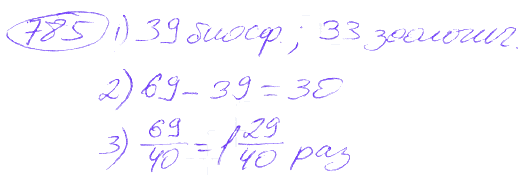 785 1) 39 биосф.; 33 зоологич.
2) 69 - 39 = 30
3) 69/40 = 1 29/40 раз